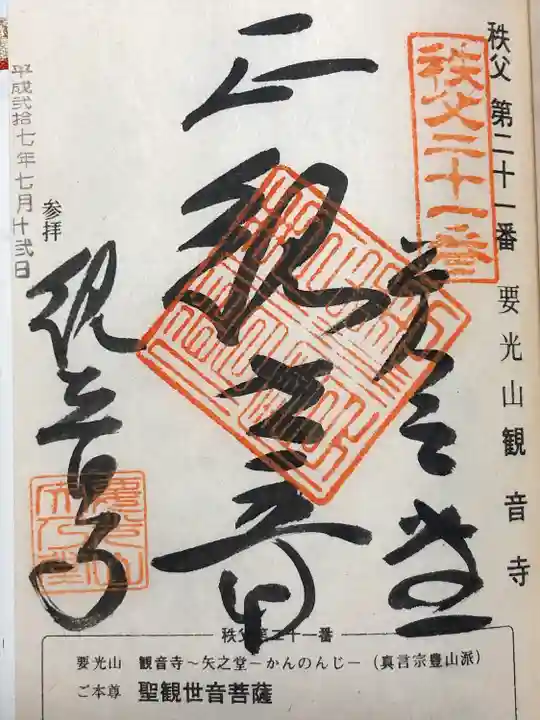 秩父 第二十一番 要光山観音寺
秩父二十一番
矢之堂
正観世音
観音寺
参拝
平成弐拾七年七月十弐日
秩父第二十一番
要光山 観音寺～矢之堂－かんのんじ－（真言宗豊山派）
ご本尊 聖観世音菩薩